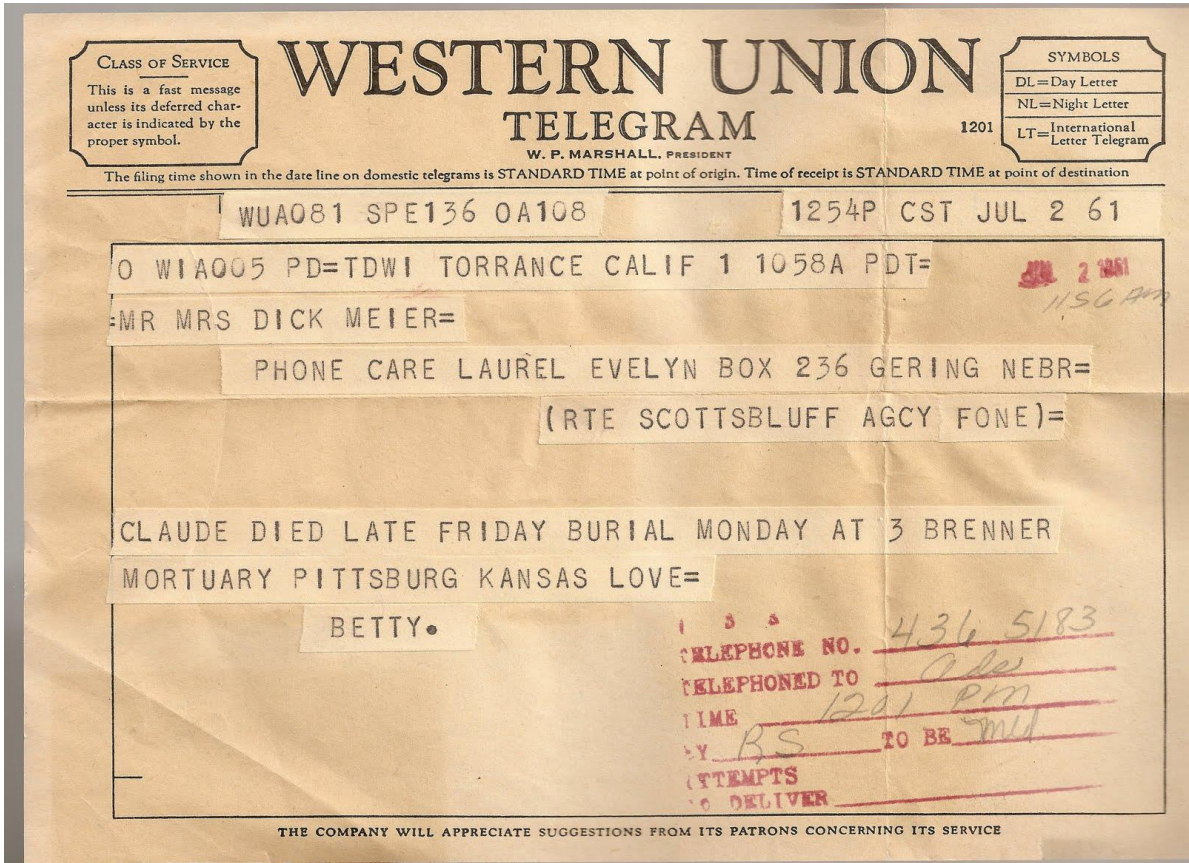 CLASS OF SERVICE
This is a fast message
unless its deferred char-
acter is indicated by the
proper symbol.
WESTERN UNION
TELEGRAM
W. P. MARSHALL, PRESIDENT
1201
SYMBOLS
DL=Day Letter
NL=Night Letter
LT=International Letter Telegram
The filing time shown in the date line on domestic telegrams is STANDARD TIME at point of origin. Time of receipt is STANDARD TIME at point of destination
WUA081 SPE136 OA108 1254P CST JUL 2 61
O WIA005 PD=TDWI TORRANCE CALIF 1 1058A PDT=
JUL 2 1961
11.56 AM
=MR MRS DICK MEIER=
PHONE CARE LAUREL EVELYN BOX 236 GERING NEBR=
(RTE SCOTTSBLUFF AGCY FONE)=
CLAUDE DIED LATE FRIDAY BURIAL MONDAY AT 3 BRENNER
MORTUARY PITTSBURG KANSAS LOVE=
BETTY.
TELEPHONE NO. 436 5183
TELEPHONED TO
TIME 1201 PM
BY RS TO BE mld
ATTEMPTS
TO DELIVER
THE COMPANY WILL APPRECIATE SUGGESTIONS FROM ITS PATRONS CONCERNING ITS SERVICE